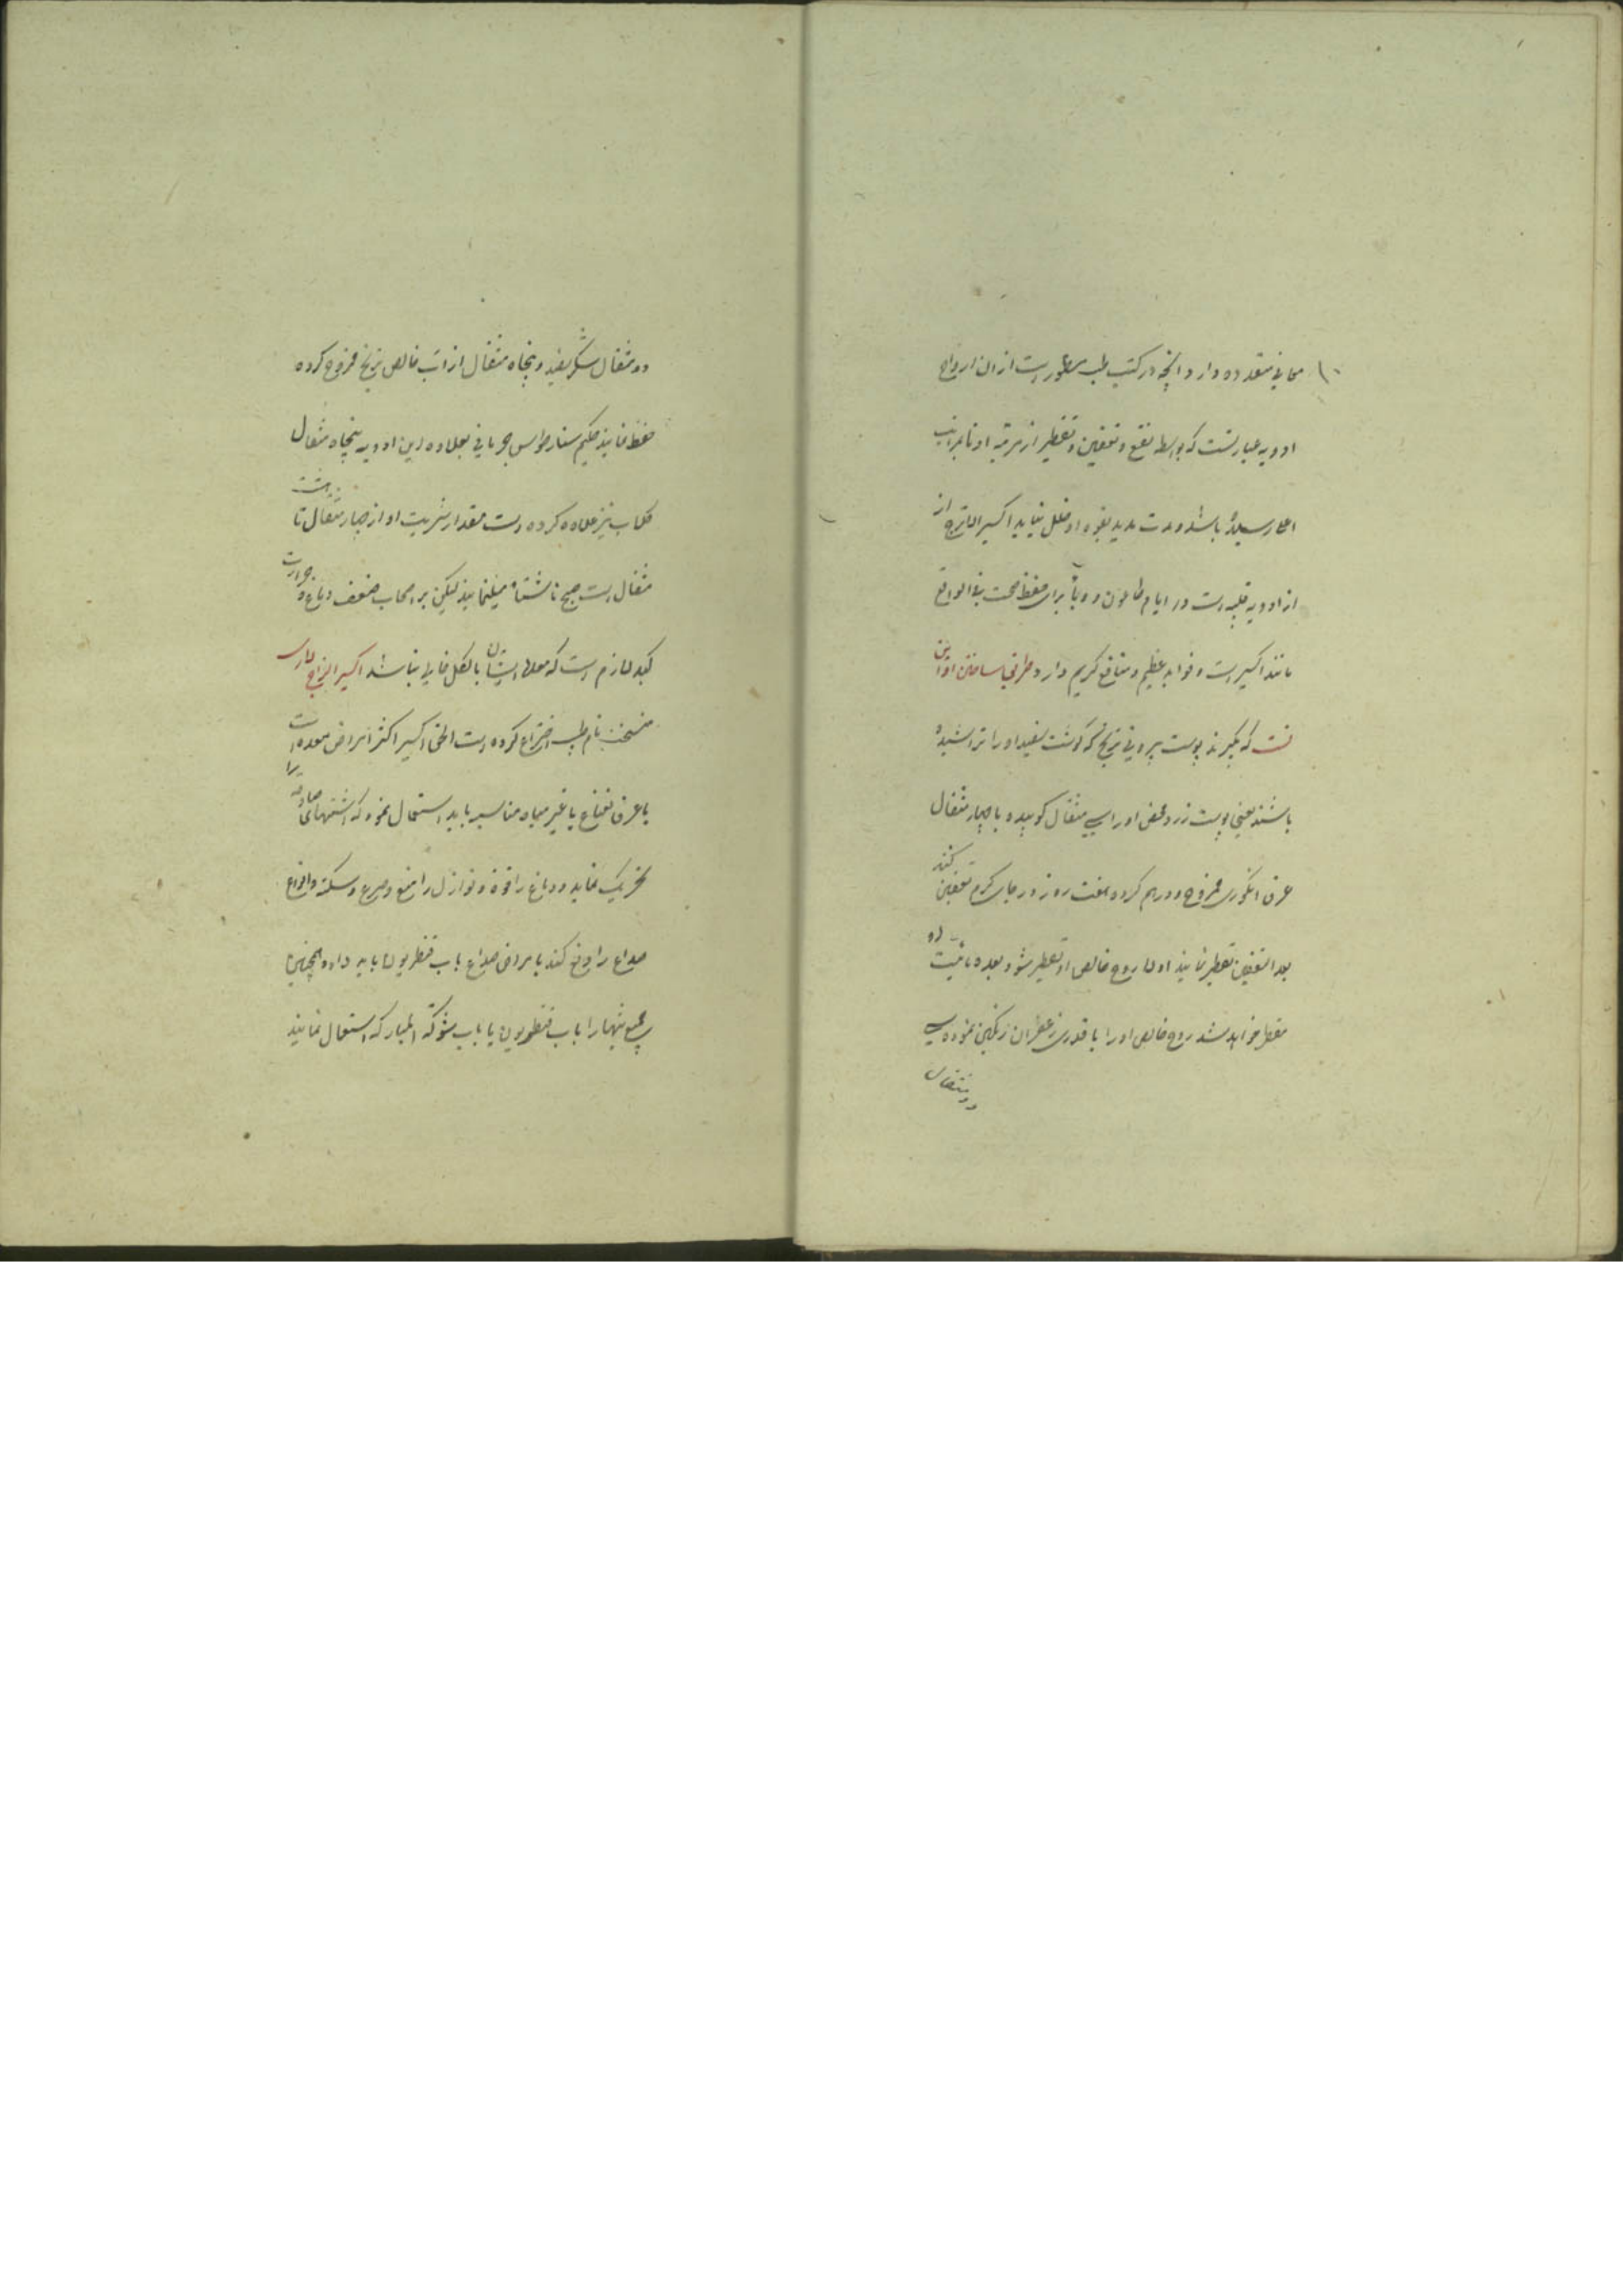 معانی متعدده دارد آنچه در کتب طب مسطور است از ان ارواح
ادویه عبارتست که بواسطه نقع و تعفین و تقطیر از مرتبه او تا بمراتب
اعلا رسیده باشد و مدت مدید بقوه او خلل نیاید اکسیر الاترج از
از ادویه قلبیه است در ایام طاعون و وبا برای حفظ صحت فی الواقع
مانند اکسیر است و فواید عظیم و منافع کریم دارد طریق ساختن او این
است که بگیرند پوست بیرونی ترنج که گوشت سفید او را تراشیده
باشند یعنی پوست زرد محض او را سی مثقال کوبیده با چهار مثقال
عرق انگوری ممزوج و درهم کرده هفت روز در جای گرم تعفین کنند
بعد التعفین تقطیر نمایند اولا روح خالص او تقطیر شود بعده مائیت او
مقطر خواهد شد روح خالص او را با قدری زعفران رنگین نموده سی
دو مثقال
دو مثقال شکر سفید و پنجاه مثقال از آب خالص ترنج ممزوج کرده
حفظ نمایند حکیم سنارطوس جرمانی بعلاوه این ادویه پنجاه مثقال
گلاب نیز علاوه کرده است مقدار شربت او از چهار مثقال تا هشت
مثقال است صبح ناشتا میل نمایند لیکن بر اصحاب ضعف دماغ و حرارت
کبد لازم است که معده ایشان بالکل خالی نباشد اکسیر الزاج لارس
نام طبیب اختراع کرده است الحق اکسیر اکثر امراض معده است
با عرق نعناع یا غیر میاه مناسبه باید استعمال نمود که اشتهای صادقه را
تحریک نماید و دماغ را قوة و نوازل را منع و صرع و سکته و انواع
صداع را دفع کند با مراض صداع با آب قنطریون باید داده همچنین
جمیع تبها را با آب قنطوریون یا با آب شوکة المبارکه استعمال نمایند